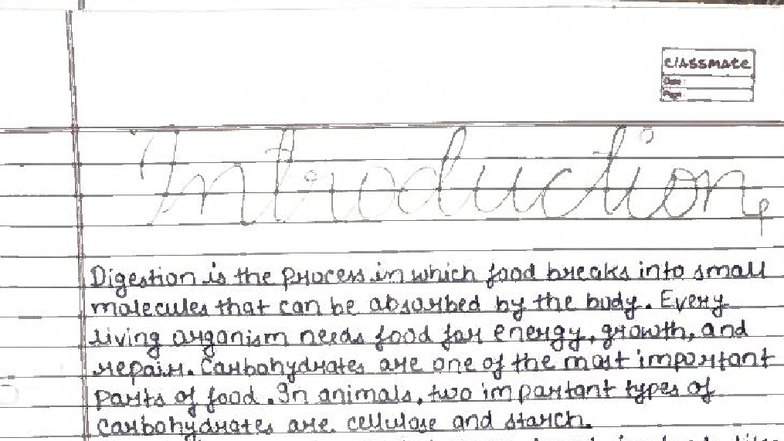 CLASSMATE
Date
Page
Introduction
Digestion is the process in which food breaks into small
molecules that can be absorbed by the body. Every
living organism needs food for energy, growth, and
repair. Carbohydrates are one of the most important
parts of food. In animals, two important types of
carbohydrates are cellulose and starch.